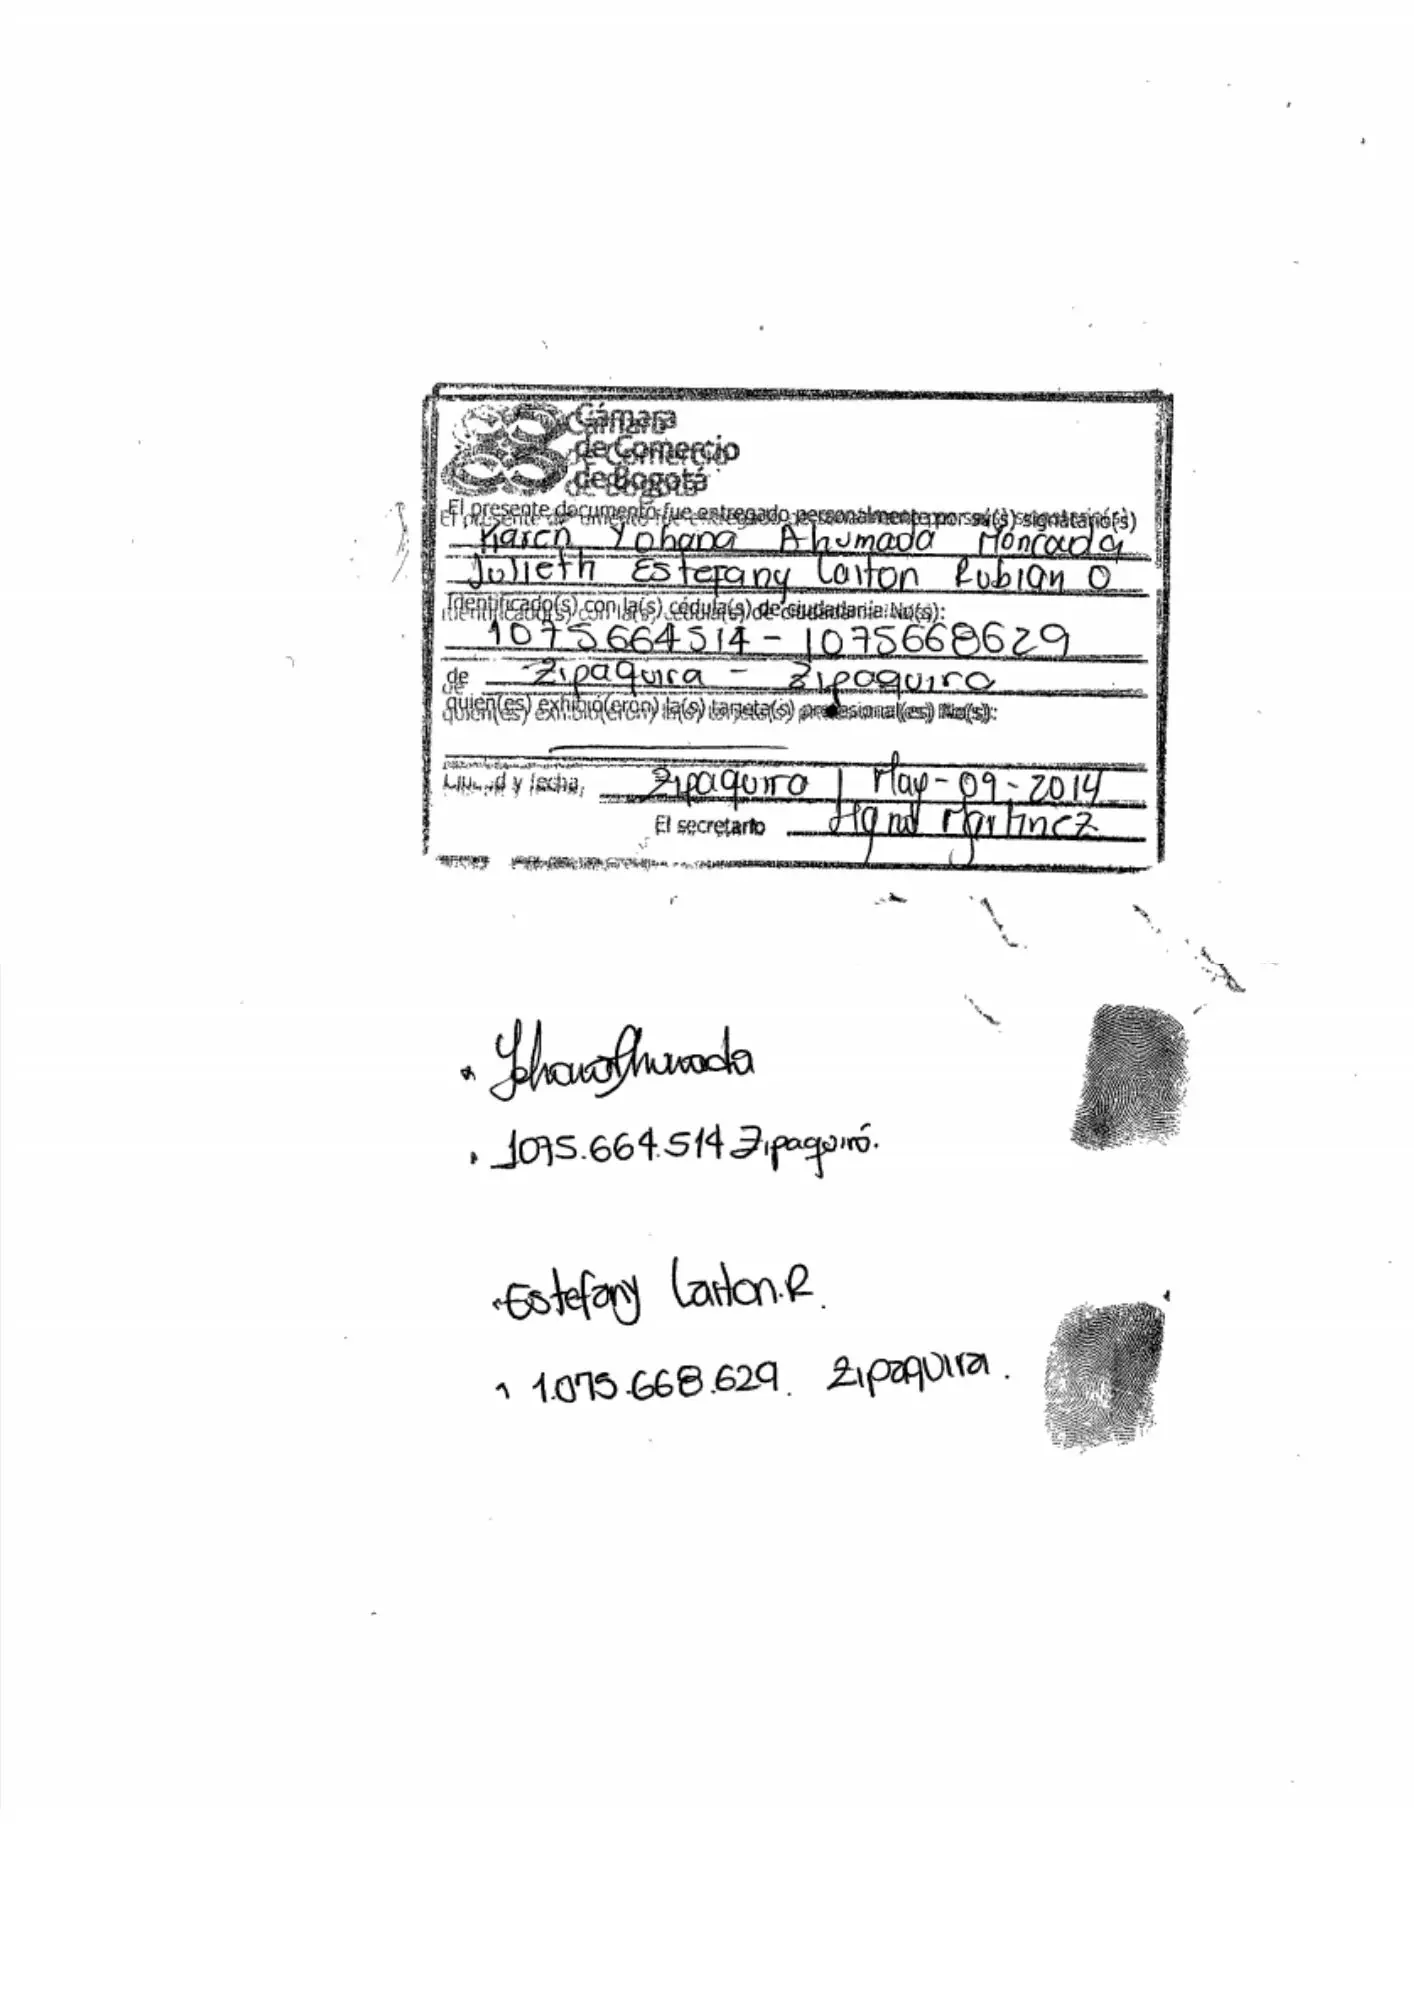 Cámara
de Comercio
de Bogotá
El presente documento fue entregado personalmente por su(s) signatario(s)
Karen Yohana Ahumada Moncada
Julieth Estefany Laiton Rubiano
Identificado(s) con la(s) cédula(s) de ciudadania No(s):
1075664514 - 1075668629
de Zipaquira - Zipaquira
quien(es) exhibió(eron) la(s) tarjeta(s) profesional(es) No(s):
Ciudad y fecha, Zipaquira | May-09-2014
El secretario Martinez
Yohana Ahumada
1075.664.514 Zipaquirá.
Estefany Laiton.R.
1.075.668.629. Zipaquira.